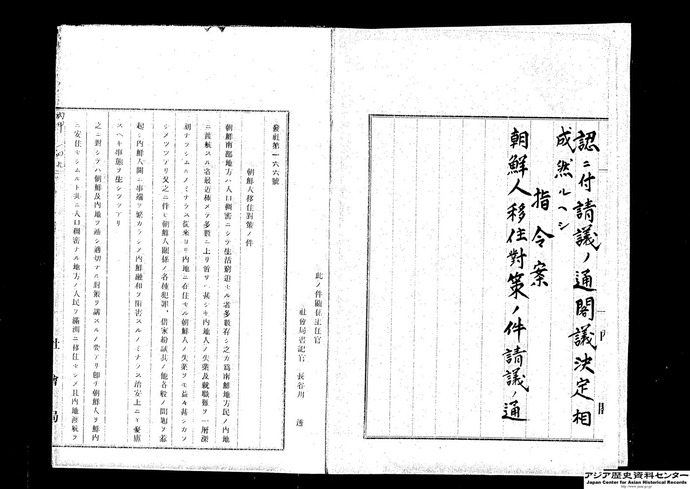 認ニ付請議ノ通閣議決定相
成然ルヘシ
指令案
朝鮮人移住對策ノ件請議ノ通
此ノ件關係主任官
社會局書記官 長谷川 透
發社第一六六號
朝鮮人移住對策ノ件
朝鮮南部地方ハ人口稠密ニシテ生活窮迫セル者多數存シ之カ爲南鮮地方民ノ内地
ニ渡航スル者最近極メテ多數ニ上リ啻ニ甚シキ内地人ノ失業及就職難ヲ一層深
刻ナラシムルノミナラス從來ヨリ内地ニ在住セル朝鮮人ノ失業ヲモ益々甚シカラ
シメツツアリ又之ニ伴ヒ朝鮮人關係ノ各種犯罪、借家紛議其ノ他各般ノ問題ヲ惹
起シ内鮮人間ニ事端ヲ繁カラシメ内鮮融和ヲ阻害スルノミナラス治安上ニモ憂慮
スヘキ事態ヲ生シツツアリ
之ニ對シテハ朝鮮及内地ヲ通シ適切ナル對策ヲ講スルノ要アリ即チ朝鮮人ヲ鮮内
ニ安住セシムルト共ニ人口稠密ナル地方ノ人民ヲ滿洲ニ移住セシメ且内地渡航ヲ
社會局
アジア歴史資料センター
Japan Center for Asian Historical Records